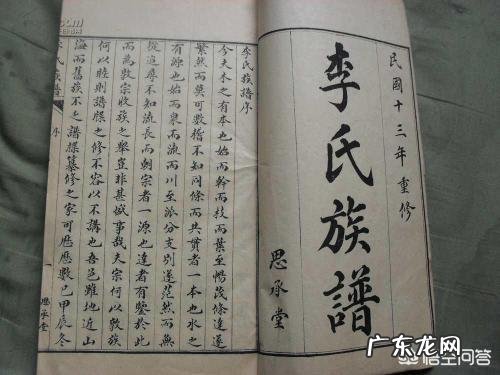 民國十三年重修
李氏族譜
思承堂
李氏族譜序
今夫木之有本也始而幹而枝而葉至暢茂條達遂
繁然而莫可數稽不知同條而共貫者一本也水之
有源也始而泉而流而川至派分支別遂茫然而無
從追尋不知流長而朝宗者一源也達者有鑒於此
而為敦宗收族之舉豈非甚盛事哉夫宗何以敦族
何以睦則譜牒之修不容以不講也吾邑雖地近山
海而舊族不乏譜牒纂修之家可歷歷數已甲辰冬
李氏族譜
序
一
思承堂
悟空问答
广东龙网